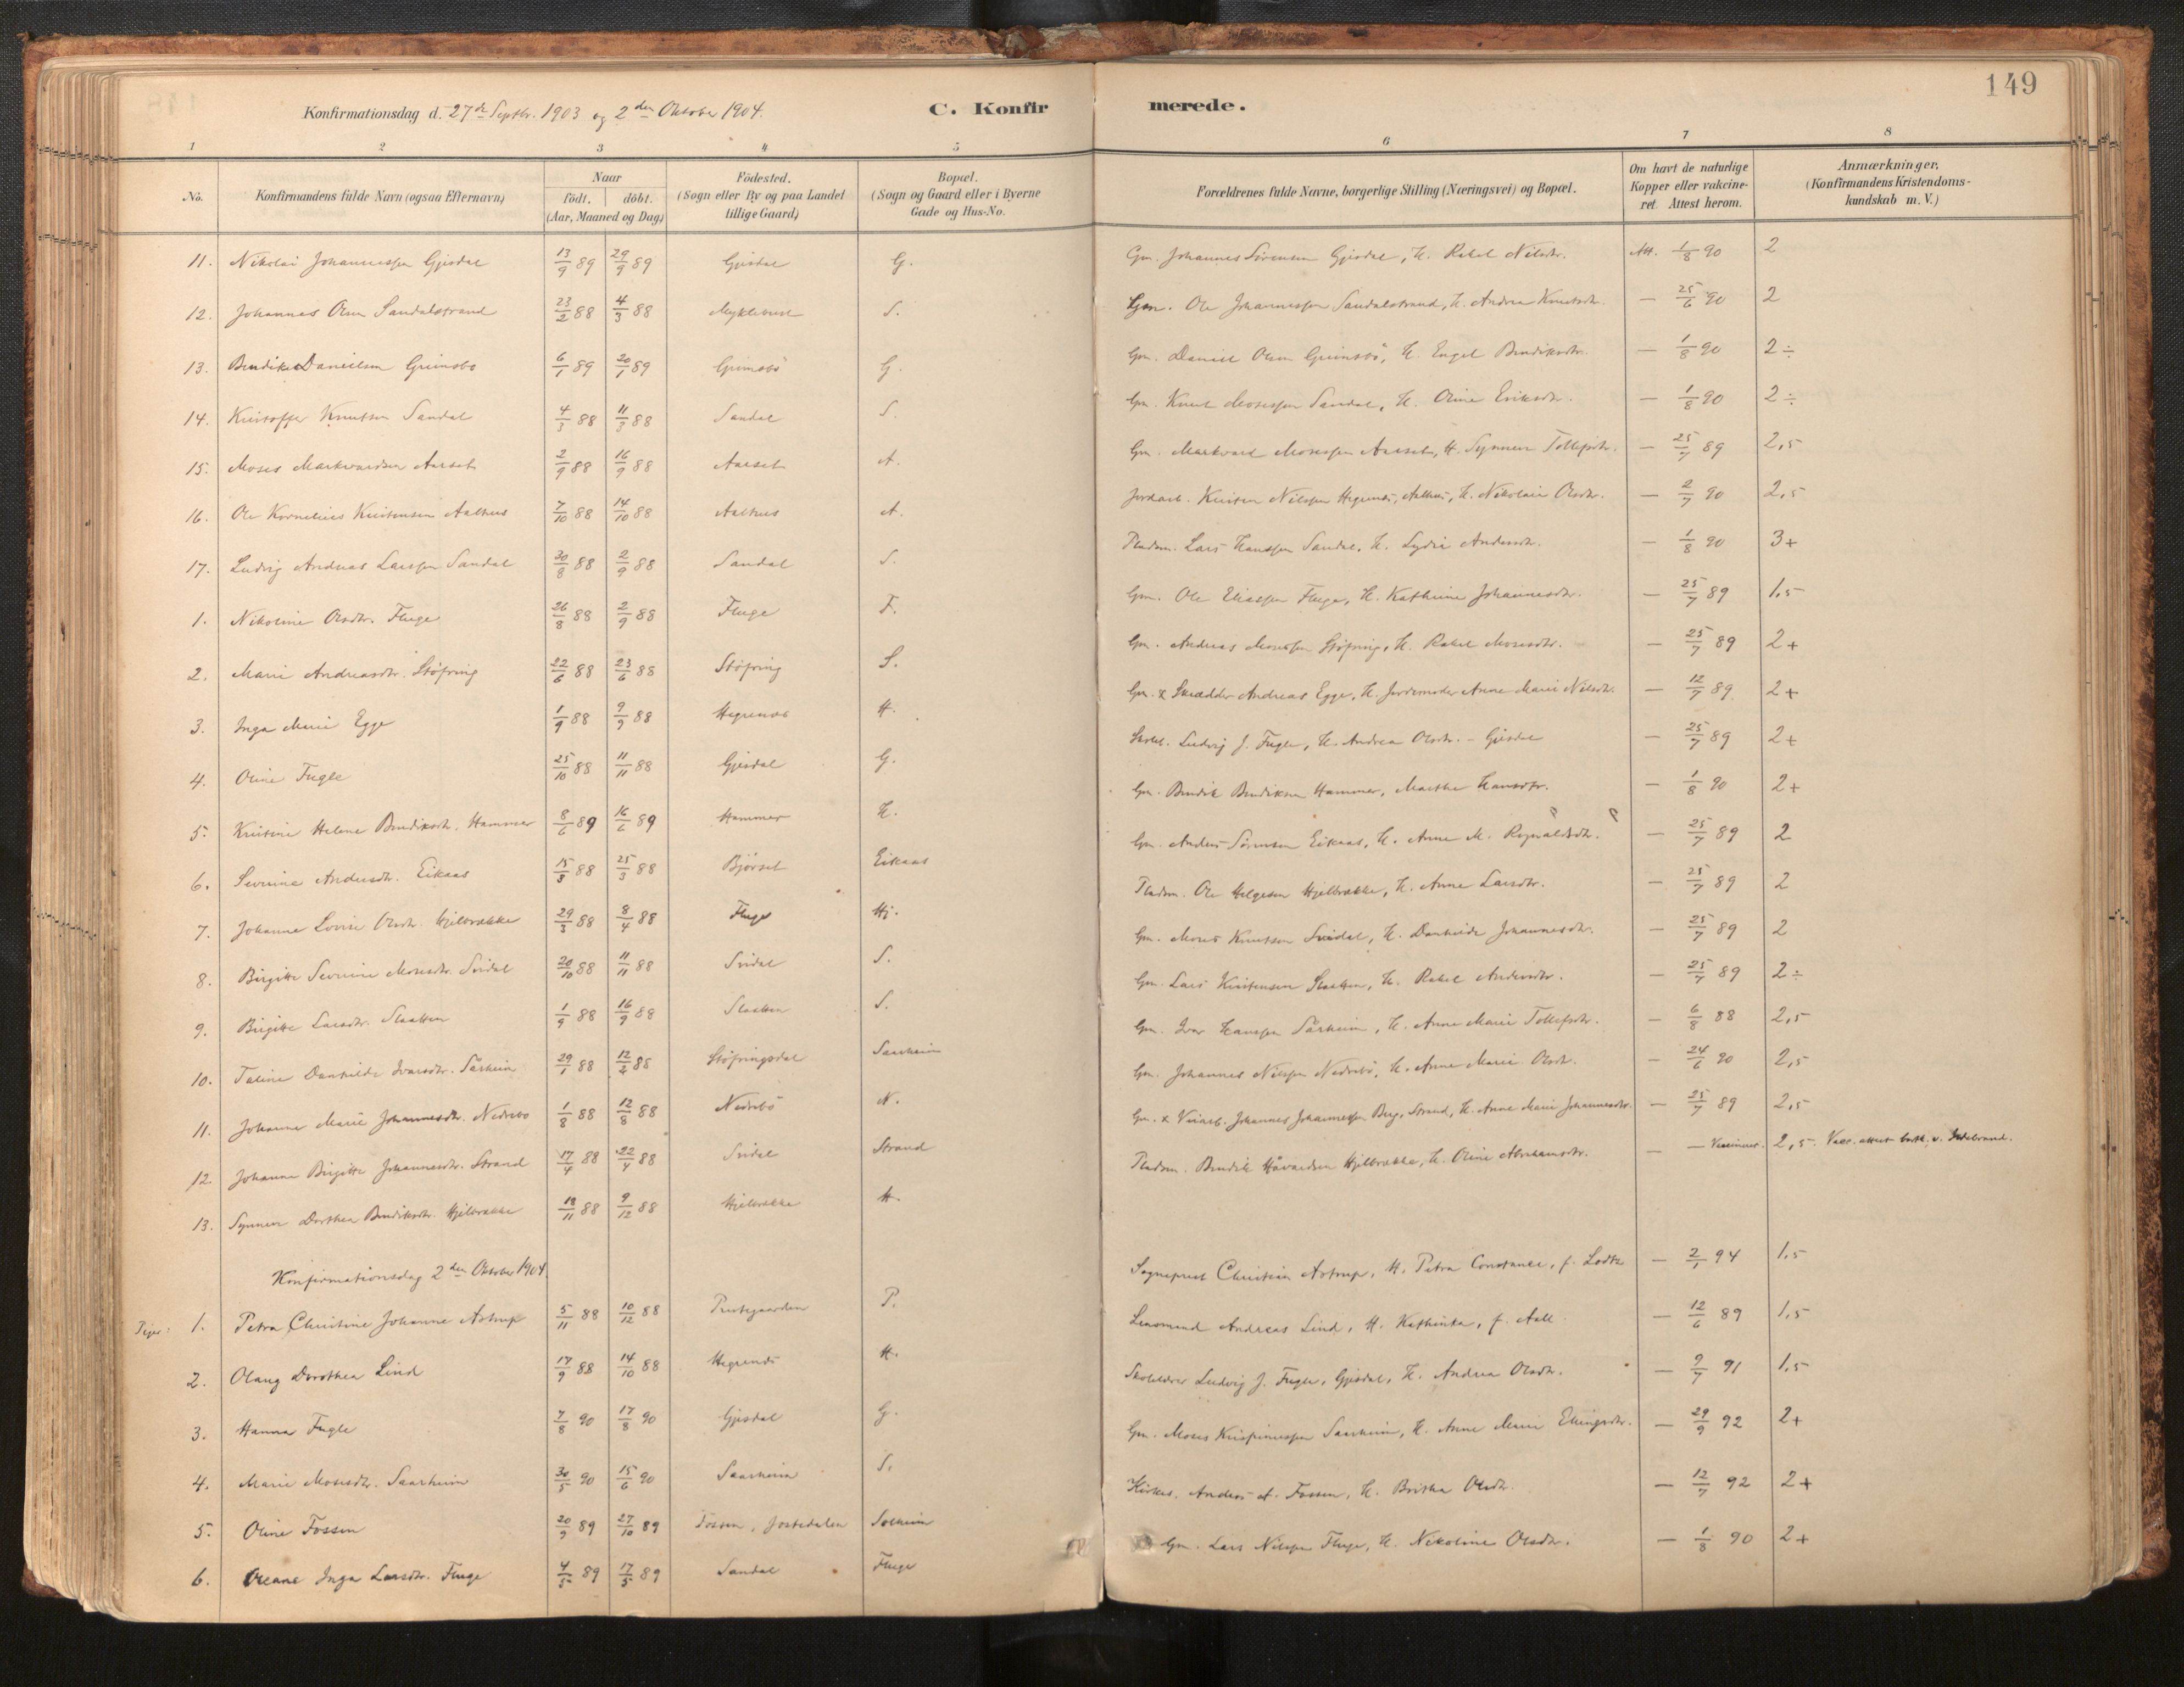 149
Konfirmationsdag d. 27de Septbr. 1903 og 2den Oktober 1904.
C. Konfirmerede.
1 2 3 4 5 6 7 8
No. Konfirmandens fulde Navn (ogsaa Efternavn) Naar födt, döbt. (Aar, Maaned og Dag) Födested. (Sogn eller By og paa Landet tillige Gaard) Bopæl. (Sogn og Gaard eller i Byerne Gade og Hus-No. Forældrenes fulde Navne, borgerlige Stilling (Næringsvei) og Bopæl. Om havt de naturlige Kopper eller vakcineret. Attest herom. Anmærkninger. (Konfirmandens Kristendomskundskab m. V.)
11. Nikolai Johannessen Gjesdal 13/9 89 29/9 89 Gjesdal G. Gm. Johannes Sörensen Gjesdal, H. Rakel Nilsdtr. Att. 1/8 90 2
12. Johannes Olsen Sandalstrand 23/2 88 4/3 88 Myklebust S. Gm. Ole Johannessen Sandalstrand, H. Andrea Knutsdtr. — 25/6 90 2
13. Bendik Danielsen Grimsbö 6/1 89 20/1 89 Grimsbö G. Gm. Daniel Olsen Grimsbö, H. Engel Bendiksdtr. — 1/8 90 2÷
14. Kristoffer Knutsen Sandal 4/3 88 11/3 88 Sandal S. Gm. Knut Mosessen Sandal, H. Oline Eriksdtr. — 1/8 90 2÷
15. Moses Markvardsen Aarset 2/9 88 16/9 88 Aarset A. Gm. Markvard Mosessen Aarset, H. Synneve Tollefsdtr. — 25/7 89 2,5
16. Ole Kornelius Kristensen Aalhus 7/10 88 14/10 88 Aalhus A. Jordarb. Kristen Nilssen Hegrenes, Aalhus, H. Nikolaie Olsdtr. — 2/7 90 2,5
17. Ludvig Andreas Larssen Sandal 30/8 88 2/9 88 Sandal S. Pladsm. Lars Hanssen Sandal, H. Lydie Andersdtr. — 1/8 90 3+
1. Nikoline Olsdtr. Fluge 26/8 88 2/9 88 Fluge F. Gm. Ole Eliassen Fluge, H. Kathrine Johannesdtr. — 25/7 89 1,5
2. Marie Andreasdtr. Stöfring 22/6 88 23/6 88 Stöfring S. Gm. Andreas Mosessen Stöfring, H. Rakel Mosesdtr. — 25/7 89 2+
3. Inga Marie Egge 1/9 88 9/9 88 Hegrenes H. Gm. & Skrædder Andreas Egge, H. Jordemoder Anne Marie Nilsdtr. — 12/7 89 2+
4. Oline Fugle 25/10 88 11/11 88 Gjesdal G. Skolel. Ludvig J. Fugle, H. Andrea Olsdtr. - Gjesdal — 25/7 89 2+
5. Kristine Helene Bendiksdtr. Hammer 8/6 89 16/6 89 Hammer H. Gm. Bendik Bendiksen Hammer, Marthe Hansdtr. — 1/8 90 2+
6. Severine Andersdtr. Eikaas 15/3 88 25/3 88 Bjørset Eikaas Gm. Anders Sörensen Eikaas, H. Anne M. Rognaldsdtr. — 25/7 89 2
7. Johanne Lovise Olsdtr. Hjelbrække 29/3 88 8/4 88 Fluge Hj. Pladsm. Ole Helgesen Hjelbrække, H. Anne Larsdtr. — 25/7 89 2
8. Birgitte Severine Mosesdtr. Svidal 20/10 88 11/11 88 Svidal S. Gm. Moses Knutsen Svidal, H. Danhilde Johannesdtr. — 25/7 89 2
9. Birgitte Larsdtr. Slaatten 1/9 88 16/9 88 Slaatten S. Gm. Lars Kristensen Slaatten, H. Rakel Andersdtr. — 25/7 89 2÷
10. Taline Danhilde Ivarsdtr. Sårheim 29/1 88 12/2 88 Stöfringsdal Saarheim Gm. Ivar Hanssen Sårheim, H. Anne Marie Tollefsdtr. — 6/8 88 2,5
11. Johanne Marie Johannesdtr. Nedrebö 1/8 88 12/8 88 Nedrebö N. Gm. Johannes Nilssen Nedrebö, H. Anne Marie Olsdtr. — 24/6 90 2,5
12. Johanne Birgitte Johannesdtr. Strand 17/4 88 22/4 88 Svidal Strand Gm. & Veiarb. Johannes Johannessen Berg, Strand, H. Anne Marie Johannesdtr. — 25/7 89 2,5
13. Synneve Dorthea Bendiksdtr. Hjelbrække 18/11 88 9/12 88 Hjelbrække H. Pladsm. Bendik Håvardsen Hjelbrække, H. Oline Abrahamsdtr. — — Vaccineret. 2,5. Vacc. attest
Konfirmationsdag 2den Oktober 1904.
Piger: 1. Petra Christine Johanne Astrup 5/11 88 10/12 88 Prestegaarden P. Sogneprest Christian Astrup, H. Petra Constance, f. Lodtz — 2/1 94 1,5
2. Olaug Dorothea Lind 17/9 88 14/10 88 Hegrenes H. Lensmand Andreas Lind, H. Kathinka, f. Aall — 12/6 89 1,5
3. Hanna Fugle 7/8 90 17/8 90 Gjesdal G. Skolelærer Ludvig J. Fugle, Gjesdal, H. Andrea Olsdtr. — 9/7 91 1,5
4. Marie Mosesdtr. Saarheim 30/5 90 15/6 90 Saarheim S. Gm. Moses Krispinussen Saarheim, H. Anne Marie Ellingsdtr. — 29/9 92 2+
5. Oline Fossen 20/9 89 27/10 89 Fossen, Jostedalen Solheim Kirkes. Anders A. Fossen, H. Britha Olsdtr. — 12/7 92 2+
6. Oleane Inga Larsdtr. Fluge 4/5 89 17/5 89 Sandal Fluge Gm. Lars Nilssen Fluge, H. Nikoline Olsdtr. — 1/8 90 2+